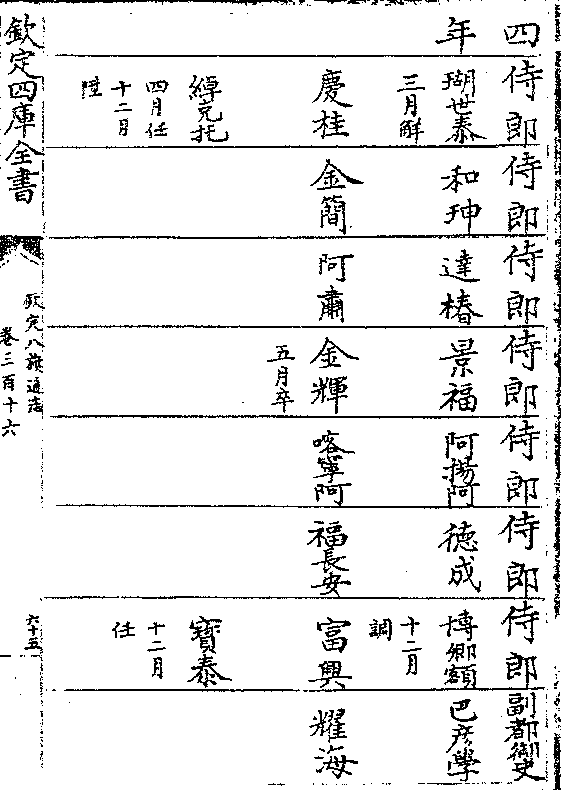 四年
侍郎
瑚世泰
三月解
慶桂
綽克托
四月任
十二月
陞
侍郎
和珅
金簡
侍郎
達椿
阿肅
侍郎
景福
金輝
五月卒
侍郎
阿揚阿
喀寧阿
侍郎
德成
福長安
侍郎
博卿額
十二月
調
富興
寶泰
十二月
任
副都御史
巴彦學
耀海
欽定四庫全書
欽定八旗通志
卷三百十六
六十五